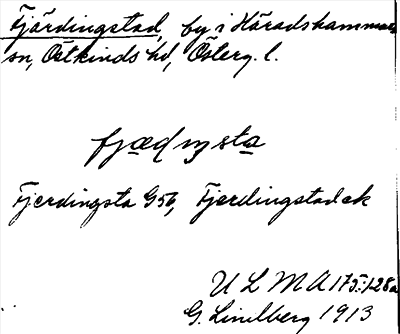 Fjärdingstad, by i Häradshammars
sn, Östkinds hd, Österg. l.
fjædıŋsta
Fjerdingsta G56, Fjerdingstad ek
U L M A 175:128a
G. Lindberg 1913